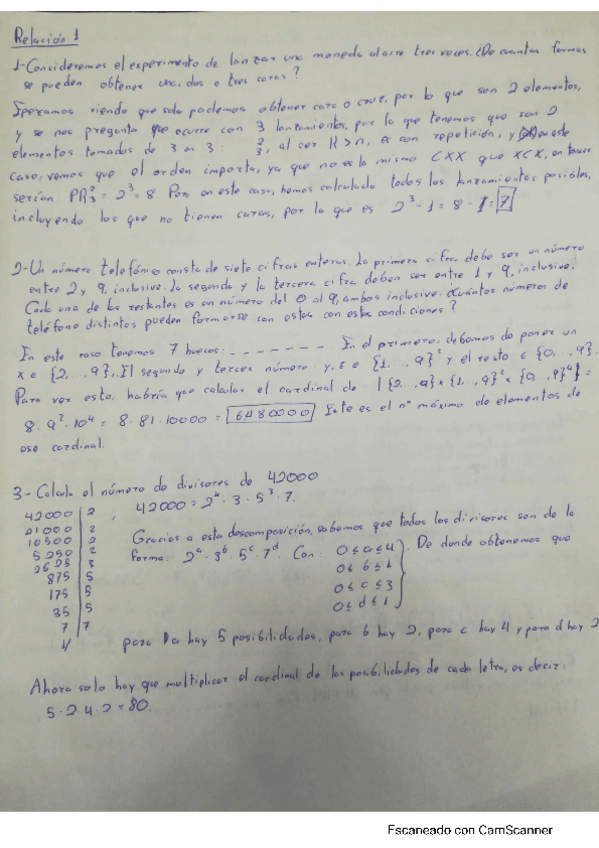 Relación 1
1-Consideremos el experimento de lanzar una moneda al aire tres veces. ¿De cuantas formas
se pueden obtener una, dos o tres caras?
viendo que solo podemos obtener cara o cruz, por lo que son 2 elementos,
y se nos pregunta que ocurre con 3 lanzamientos, por lo que tenemos que son 2
elementos tomados de 3 en 3: al ser K>n, es con repetición, y en este
caso, vemos que el orden importa, ya que no es lo mismo CXX que XCX, en tercer
serían PR₃² = 2³ = 8 Pero en este caso, hemos calculado todos los lanzamientos posibles,
incluyendo los que no tienen caras, por lo que es 2³-1 = 8-1 = 7
2-Un número telefónico consta de siete cifras enteras. La primera cifra debe ser un número
entre 2 y 9, inclusive. La segunda y la tercera cifra deben ser entre 1 y 9, inclusive.
Cada una de las restantes es un número del 0 al 9, ambos inclusive. ¿Cuántos números de
teléfono distintos pueden formarse con estas con estas condiciones?
En este caso tenemos 7 huecos: _ _ _ _ _ _ _ . En el primero, debemos de poner un
x ∈ {2,..,9}, El segundo y tercer número y,z ∈ {1,..,9}² y el resto ∈ {0,..,9}.
Para ver esto, habría que calcular el cardinal de |{2,..,9}×{1,..,9}²×{0,..,9}⁴| =
8·9²·10⁴ = 8·81·10000 = 6480000 Este es el nº máximo de elementos de
ese cardinal.
3- Calcula el número de divisores de 42000
42000 | 2 ; 42000 = 2⁴·3·5³·7.
21000 | 2
10500 | 2 Gracias a esta descomposición, sabemos que todos los divisores son de la
5250 | 2 forma: 2ᵃ·3ᵇ·5ᶜ·7ᵈ. Con: 0≤a≤4 . De donde obtenemos que
2625 | 3 0≤b≤1
875 | 5 0≤c≤3
175 | 5 0≤d≤1
35 | 5
7 | 7
1/ para a hay 5 posibilidades, para b hay 2, para c hay 4 y para d hay 2
Ahora solo hay que multiplicar el cardinal de las posibilidades de cada letra, es decir:
5·2·4·2=80.
Escaneado con CamScanner